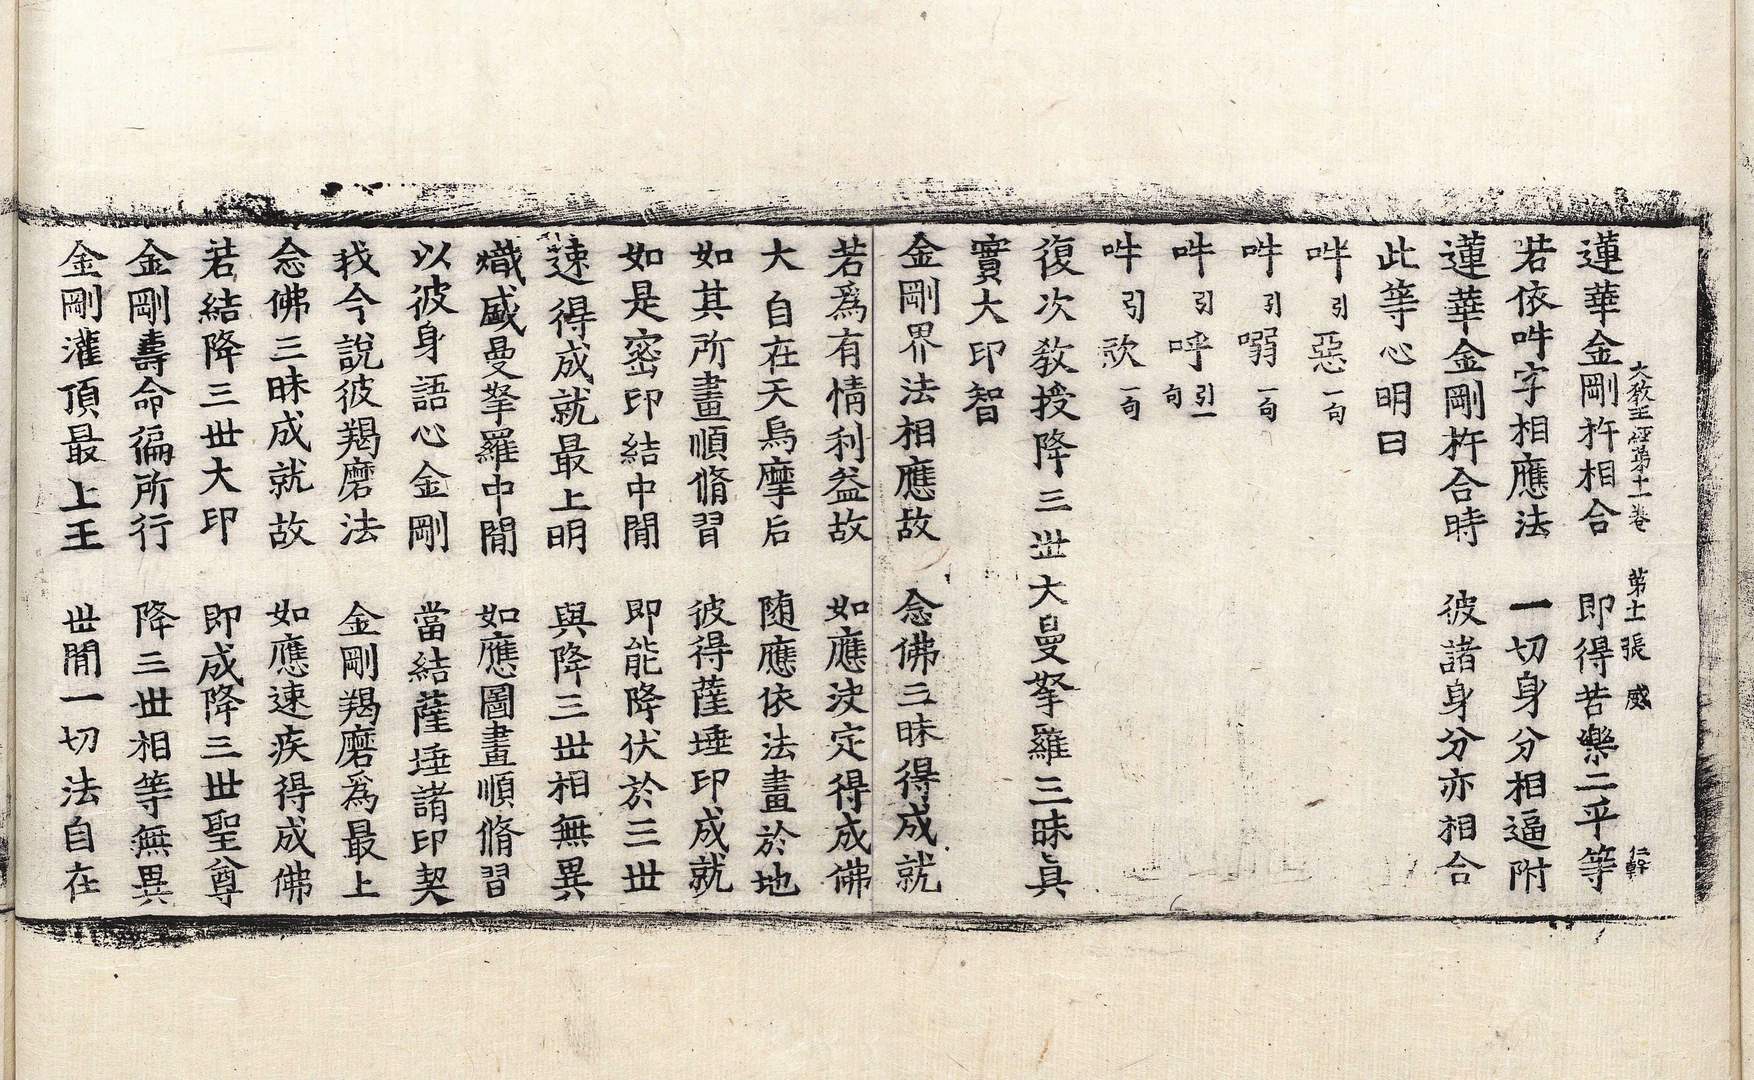 大教王經第十一卷　第十一張　咸　仁幹
蓮華金剛杵相合　即得苦樂二平等
若依吽字相應法　一切身分相逼附
蓮華金剛杵合時　彼諸身分亦相合
此等心明曰
吽引惡一句
吽引嗗一句
吽引呼引一句
吽引㰤一句
復次教授降三世大曼拏羅三昧真
實大印智
金剛界法相應故　念佛三昧得成就
若爲有情利益故　如應決定得成佛
大自在天烏摩后　随應依法畫於地
如其所畫順脩習　彼得薩埵印成就
如是密印結中間　即能降伏於三世
速得成就最上明　與降三世相無異
熾盛曼拏羅中間　如應圖畫順脩習
以彼身語心金剛　當結薩埵諸印契
我今說彼羯磨法　金剛羯磨爲最上
念佛三昧成就故　如應速疾得成佛
若結降三世大印　即成降三世聖尊
金剛壽命徧所行　降三世相等無異
金剛灌頂最上王　世間一切法自在